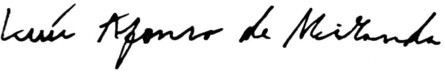 Luís Afonso de Miranda